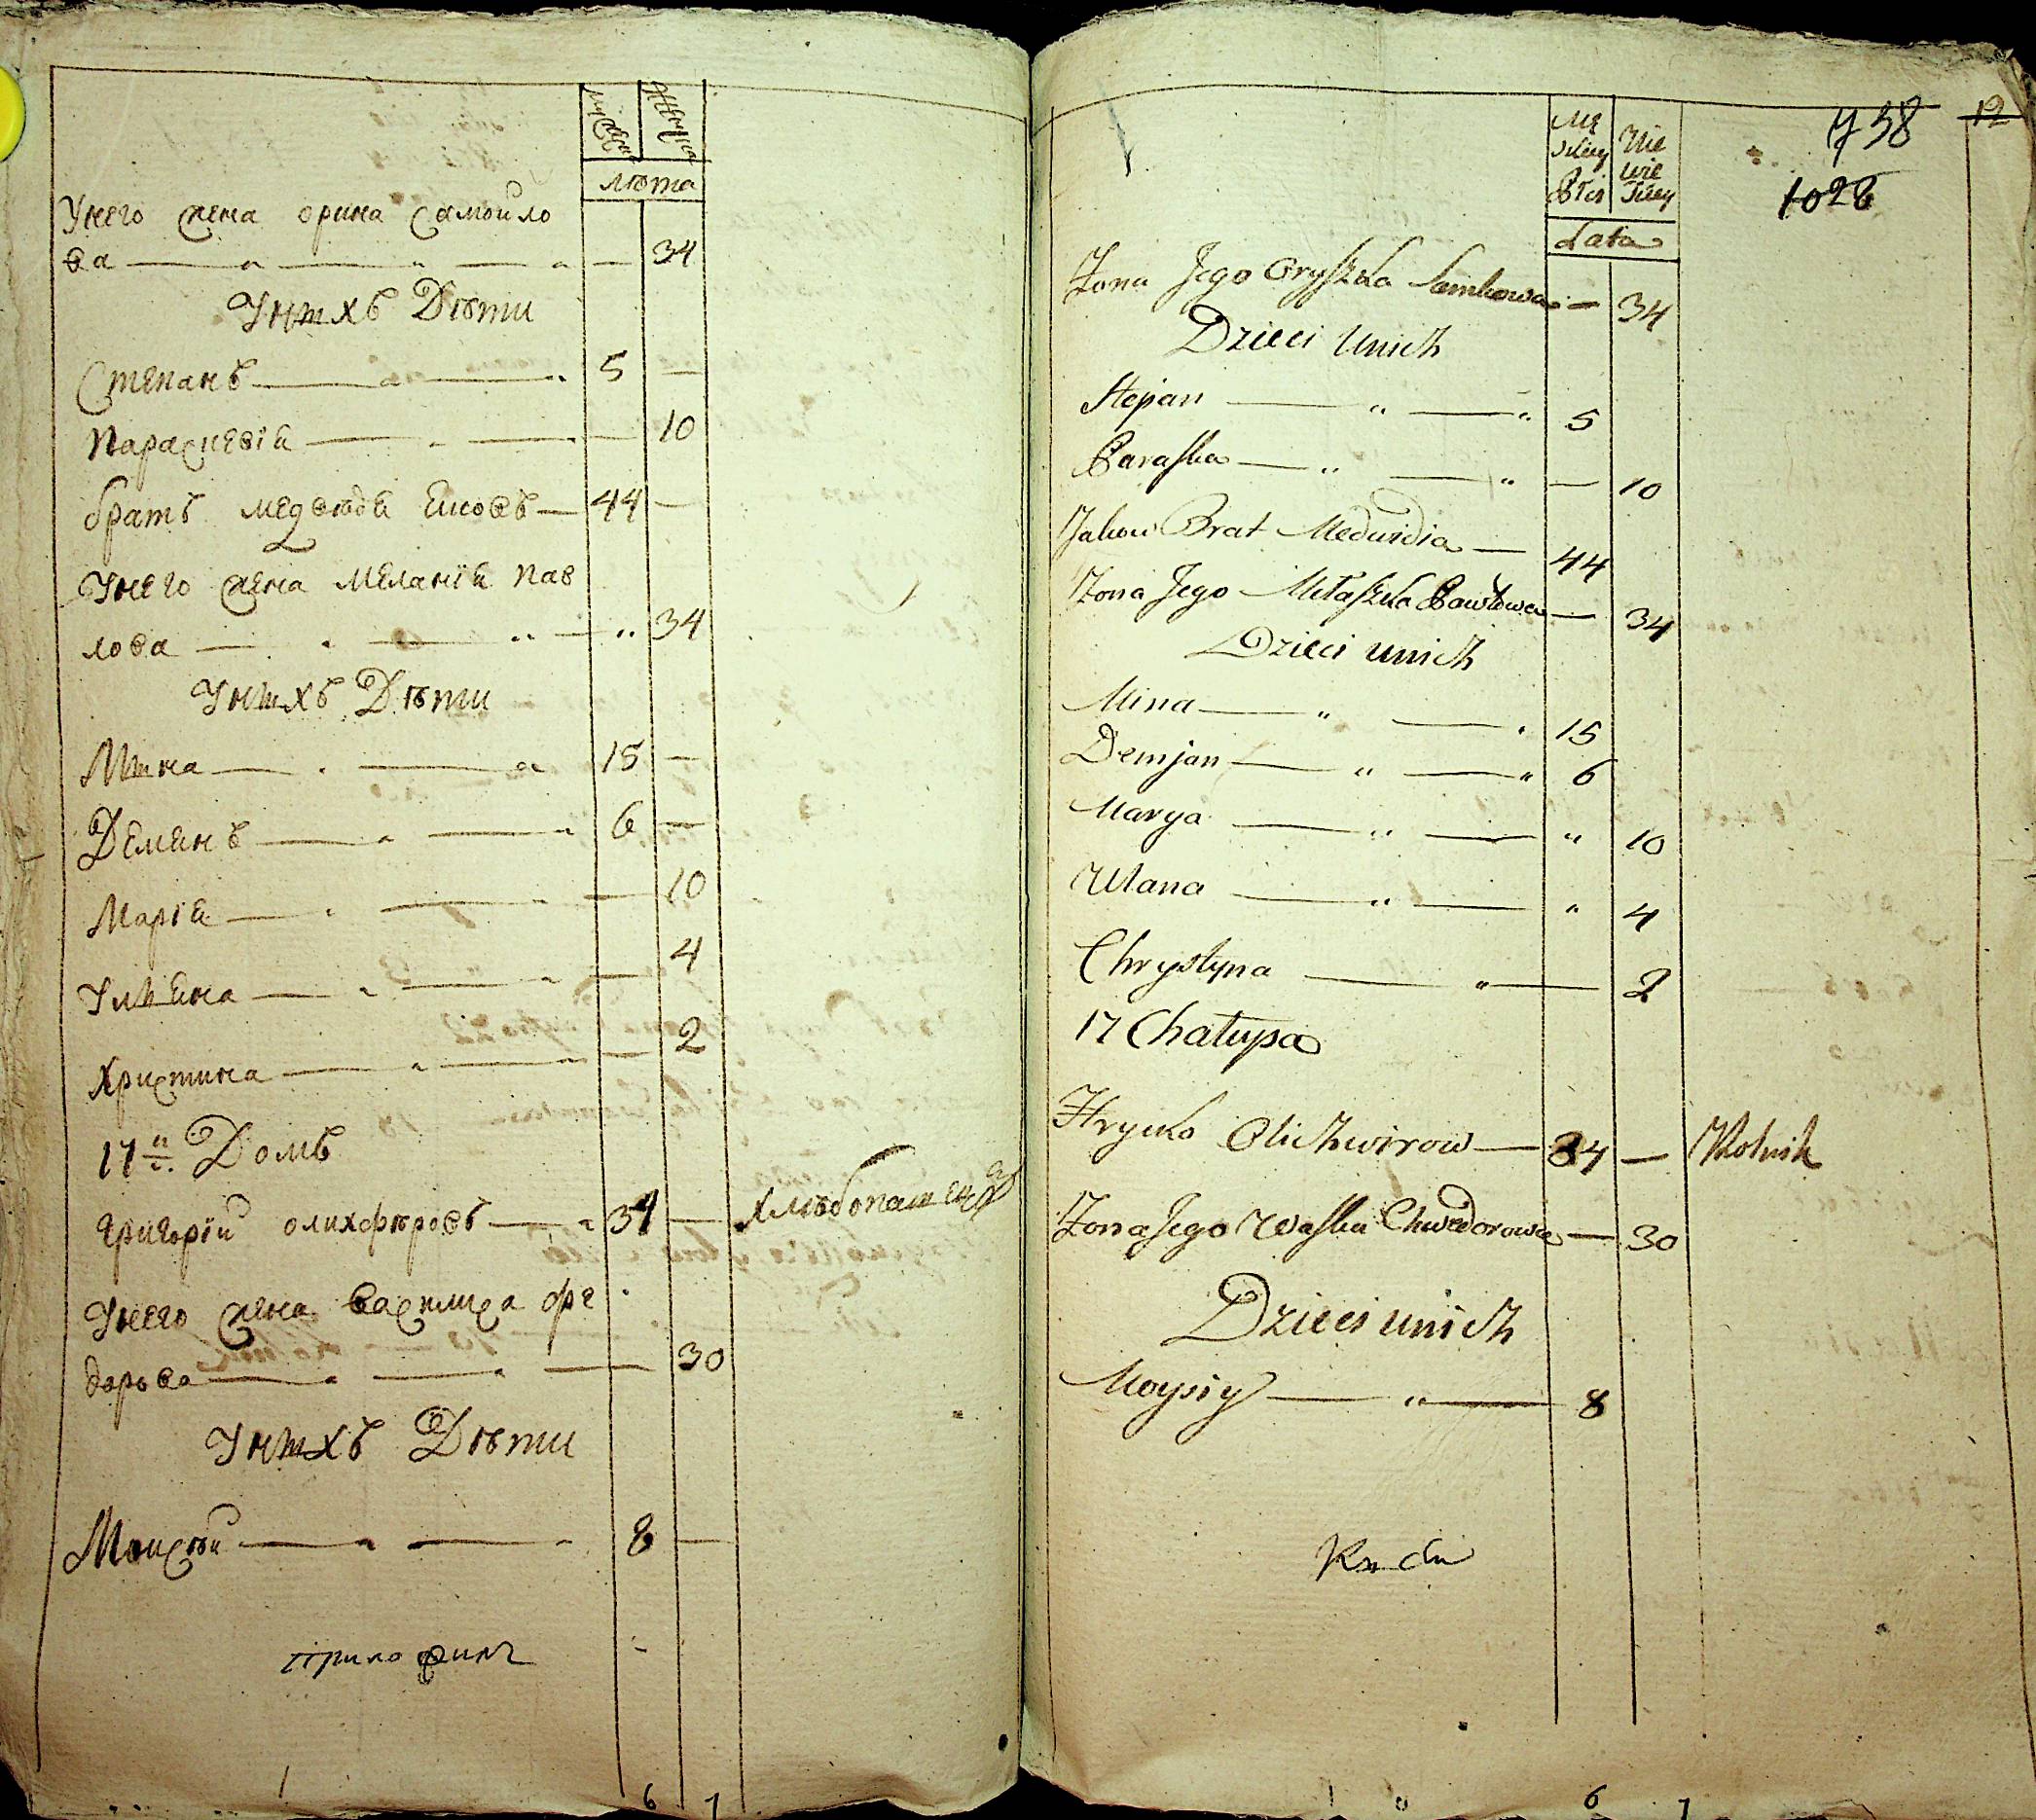 мужеска женска
лѣта
Унего жена орина самойло
ва 34
Унихъ Дѣти
Степанъ 5
Параскевія 10
братъ медведя Яковъ 44
Унего жена Меланія Пав
лова 34
Унихъ Дѣти
Мина 15
Демянъ 6
Марія 10
Уляна 4
Христина 2
17й Домъ
Григорій олихфѣровъ 34 хлѣбопашецъ
Унего жена Василиса фе
дорова 30
Унихъ Дѣти
Моисѣй 8
6 7
12
738
1028
Lata
Zona Jego Oryszka Samkowa 34
Dzieci Unich
Stepan 5
Paraska 10
Jakow Brat Medwidia 44
Zona Jego Mełaszka Pawłowa 34
Dzieci unich
Mina 15
Demjan 6
Marya 10
Ulana 4
Chrystyna 2
17 Chałupa
Hrycko Olichwirow 34 Rolnik
Zona Jego Waska Chwedorowa 30
Dzieci unich
Moysiy 8
6 7